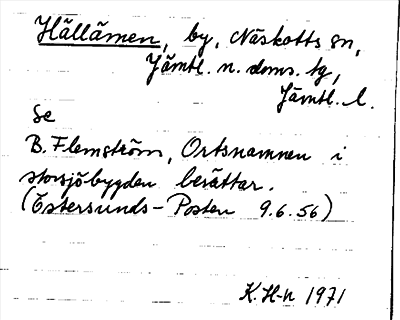 Hällåmen, by, Näskotts sn,
Jämtl. n. doms. tg,
Jämtl. l.
Se
B. Flemström, Ortsnamnen i
storsjöbygden berättar.
(Östersunds-Posten 9.6.56)
K. H-n 1971